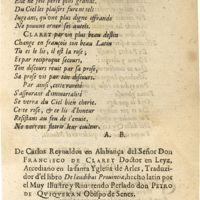 Elle ne peut perir plus grande,
Du Ciel les plaisirs
Jugeant, qu'vne plus digne offrande
Ne pouuoit orner ses autels.
CLARET par vn plus beau dessein
Change en françois ton beau Latin
Tu es le lis, il est la rose;
Et par reciproque secours.
Ton discours veut par sa prose,
Sa prose veut ton discours.
Et par ainsi,
S'asseurant d'immortalité
Se verra du Ciel bien cherie.
Cette rose, & ce lis d'honneur
Resistant au feu de l'ennie.
Ne verront fanir leur couleur.
A. B.
De Carlos Reynaldos en Alabança del Señor Don
FRANCISCO DE CLARET Doctor en Leyx,
Arcediano en la santa Yglesia de Arles, Traduzi-
dor d'el libro De laudibus Prouinciæ, hecho latin por
el Muy Illustre y Reuerendo Perlado don PETRO
DE QVIQVERAN Obispo de Senes.